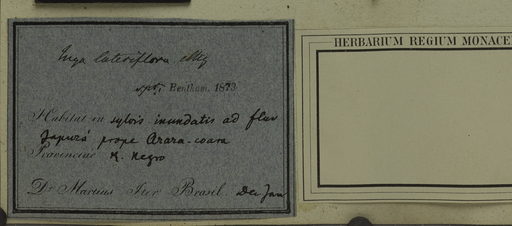 Inga lateriflora Miq
Bentham. 1873
Habitat in sylvis inundatis ad fluv
Japurá prope Arara-coara
Provinciae R. Negro
Dr. Martius Iter Brasil. Dec Jan
HERBARIUM REGIUM MONACE